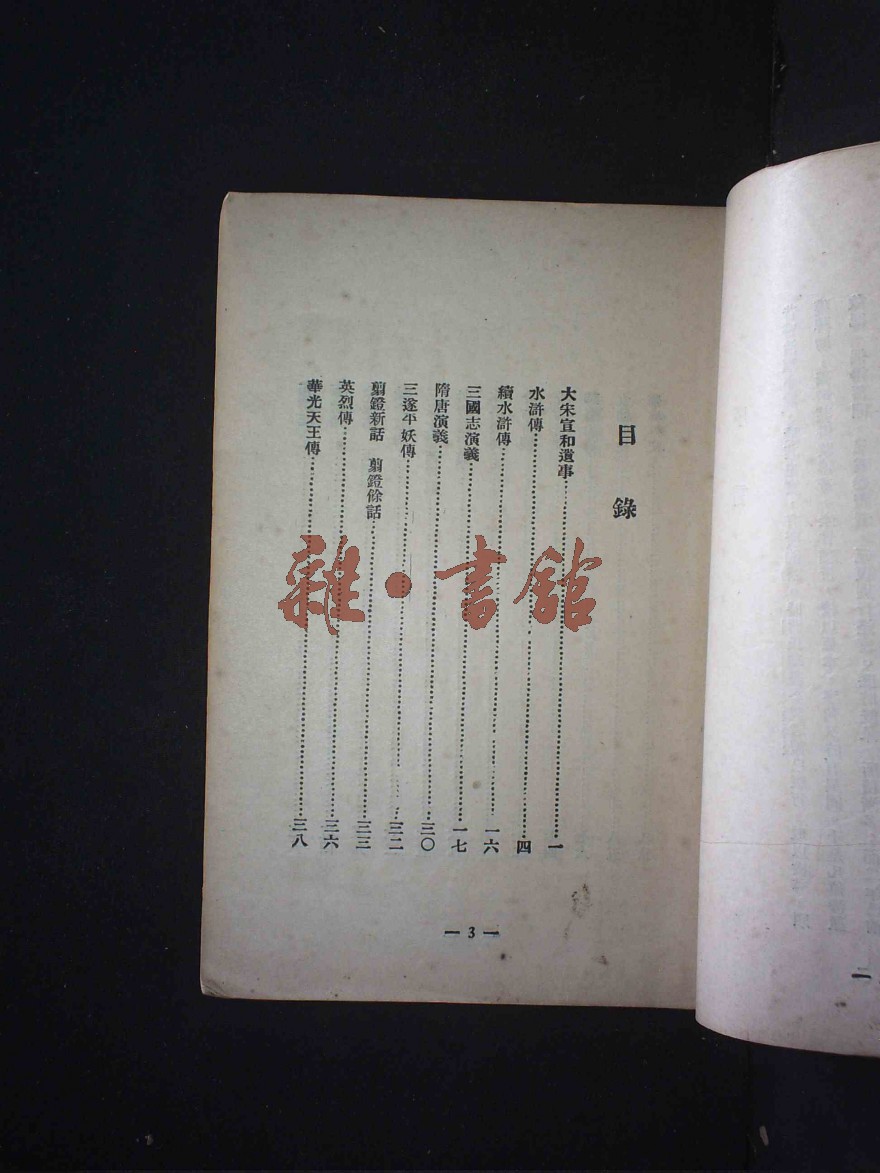 目錄
大宋宣和遺事 一
水滸傳 四
續水滸傳 一六
三國志演義 一七
隋唐演義 三〇
三遂平妖傳 三二
翦鐙新話 翦鐙餘話 三三
英烈傳 三六
華光天王傳 三八
— 3 —
雜·書館
二